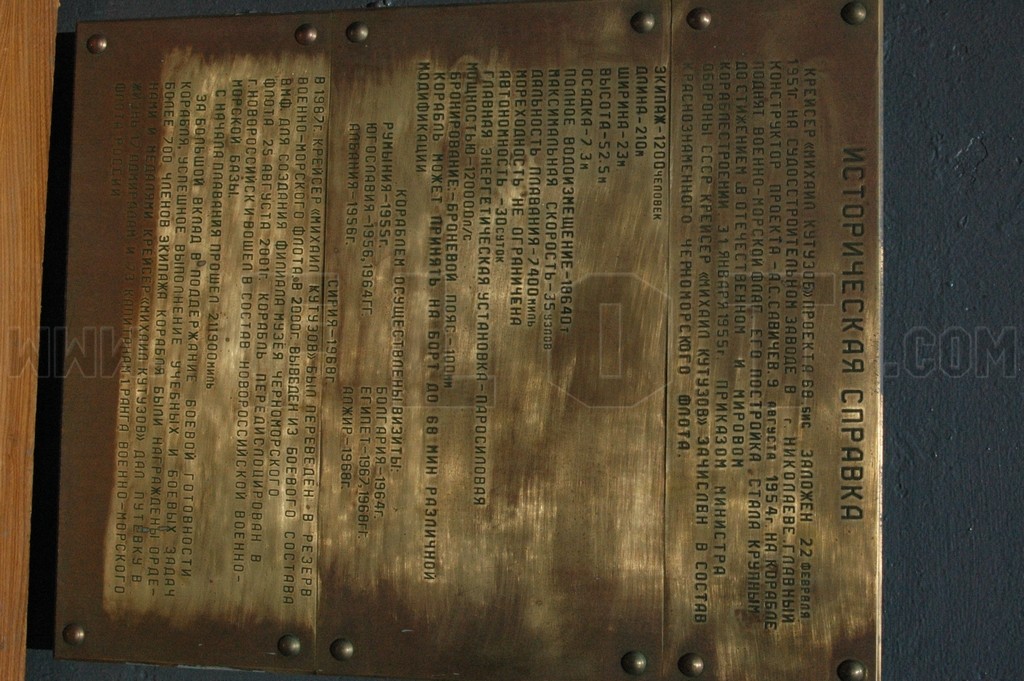 ИСТОРИЧЕСКАЯ СПРАВКА
КРЕЙСЕР «МИХАИЛ КУТУЗОВ» ПРОЕКТА 68 БИС ЗАЛОЖЕН 22 ФЕВРАЛЯ
1951г. НА СУДОСТРОИТЕЛЬНОМ ЗАВОДЕ В г. НИКОЛАЕВЕ. ГЛАВНЫЙ
КОНСТРУКТОР ПРОЕКТА - А.С.САВИЧЕВ. 9 АВГУСТА 1954г. НА КОРАБЛЕ
ПОДНЯТ ВОЕННО-МОРСКОЙ ФЛАГ. ЕГО ПОСТРОЙКА СТАЛА КРУПНЫМ
ДОСТИЖЕНИЕМ В ОТЕЧЕСТВЕННОМ И МИРОВОМ
КОРАБЛЕСТРОЕНИИ. 31 ЯНВАРЯ 1955г. ПРИКАЗОМ МИНИСТРА
ОБОРОНЫ СССР КРЕЙСЕР «МИХАИЛ КУТУЗОВ» ЗАЧИСЛЕН В СОСТАВ
КРАСНОЗНАМЕННОГО ЧЕРНОМОРСКОГО ФЛОТА.
ЭКИПАЖ-1200ЧЕЛОВЕК
ДЛИНА-210м
ШИРИНА-23м
ВЫСОТА-52.5м
ОСАДКА-7.3м
ПОЛНОЕ ВОДОИЗМЕЩЕНИЕ-18640т
МАКСИМАЛЬНАЯ СКОРОСТЬ-35УЗЛОВ
ДАЛЬНОСТЬ ПЛАВАНИЯ-7400МИЛЬ
МОРЕХОДНОСТЬ НЕ ОГРАНИЧЕНА
АВТОНОМНОСТЬ-30СУТОК
ГЛАВНАЯ ЭНЕРГЕТИЧЕСКАЯ УСТАНОВКА-ПАРОСИЛОВАЯ
МОЩНОСТЬЮ-120000л/с
БРОНИРОВАНИЕ-БРОНЕВОЙ ПОЯС-100мм
КОРАБЛЬ МОЖЕТ ПРИНЯТЬ НА БОРТ ДО 68 МИН РАЗЛИЧНОЙ
МОДИФИКАЦИИ
КОРАБЛЕМ ОСУЩЕСТВЛЕНЫ ВИЗИТЫ:
РУМЫНИЯ-1955г. БОЛГАРИЯ-1964г.
ЮГОСЛАВИЯ-1956,1964гг. ЕГИПЕТ-1967,1968гг.
АЛБАНИЯ-1956г. АЛЖИР-1968г.
СИРИЯ-1968г.
В 1987г. КРЕЙСЕР «МИХАИЛ КУТУЗОВ» БЫЛ ПЕРЕВЕДЕН В РЕЗЕРВ
ВОЕННО-МОРСКОГО ФЛОТА. В 2000г. ВЫВЕДЕН ИЗ БОЕВОГО СОСТАВА
ВМФ, ДЛЯ СОЗДАНИЯ ФИЛИАЛА МУЗЕЯ ЧЕРНОМОРСКОГО
ФЛОТА. 25 АВГУСТА 2001г. КОРАБЛЬ ПЕРЕДИСЛОЦИРОВАН В
г.НОВОРОССИЙСК И ВОШЕЛ В СОСТАВ НОВОРОССИЙСКОЙ ВОЕННО-
МОРСКОЙ БАЗЫ.
С НАЧАЛА ПЛАВАНИЯ ПРОШЕЛ 211900МИЛЬ
ЗА БОЛЬШОЙ ВКЛАД В ПОДДЕРЖАНИЕ БОЕВОЙ ГОТОВНОСТИ
КОРАБЛЯ, УСПЕШНОЕ ВЫПОЛНЕНИЕ УЧЕБНЫХ И БОЕВЫХ ЗАДАЧ
БОЛЕЕ 700 ЧЛЕНОВ ЭКИПАЖА КОРАБЛЯ БЫЛИ НАГРАЖДЕНЫ ОРДЕ-
НАМИ И МЕДАЛЯМИ. КРЕЙСЕР «МИХАИЛ КУТУЗОВ» ДАЛ ПУТЕВКУ В
ЖИЗНЬ АДМИРАЛАМ И КАПИТАНАМ 1 РАНГА ВОЕННО-МОРСКОГО
ФЛОТА РОССИИ